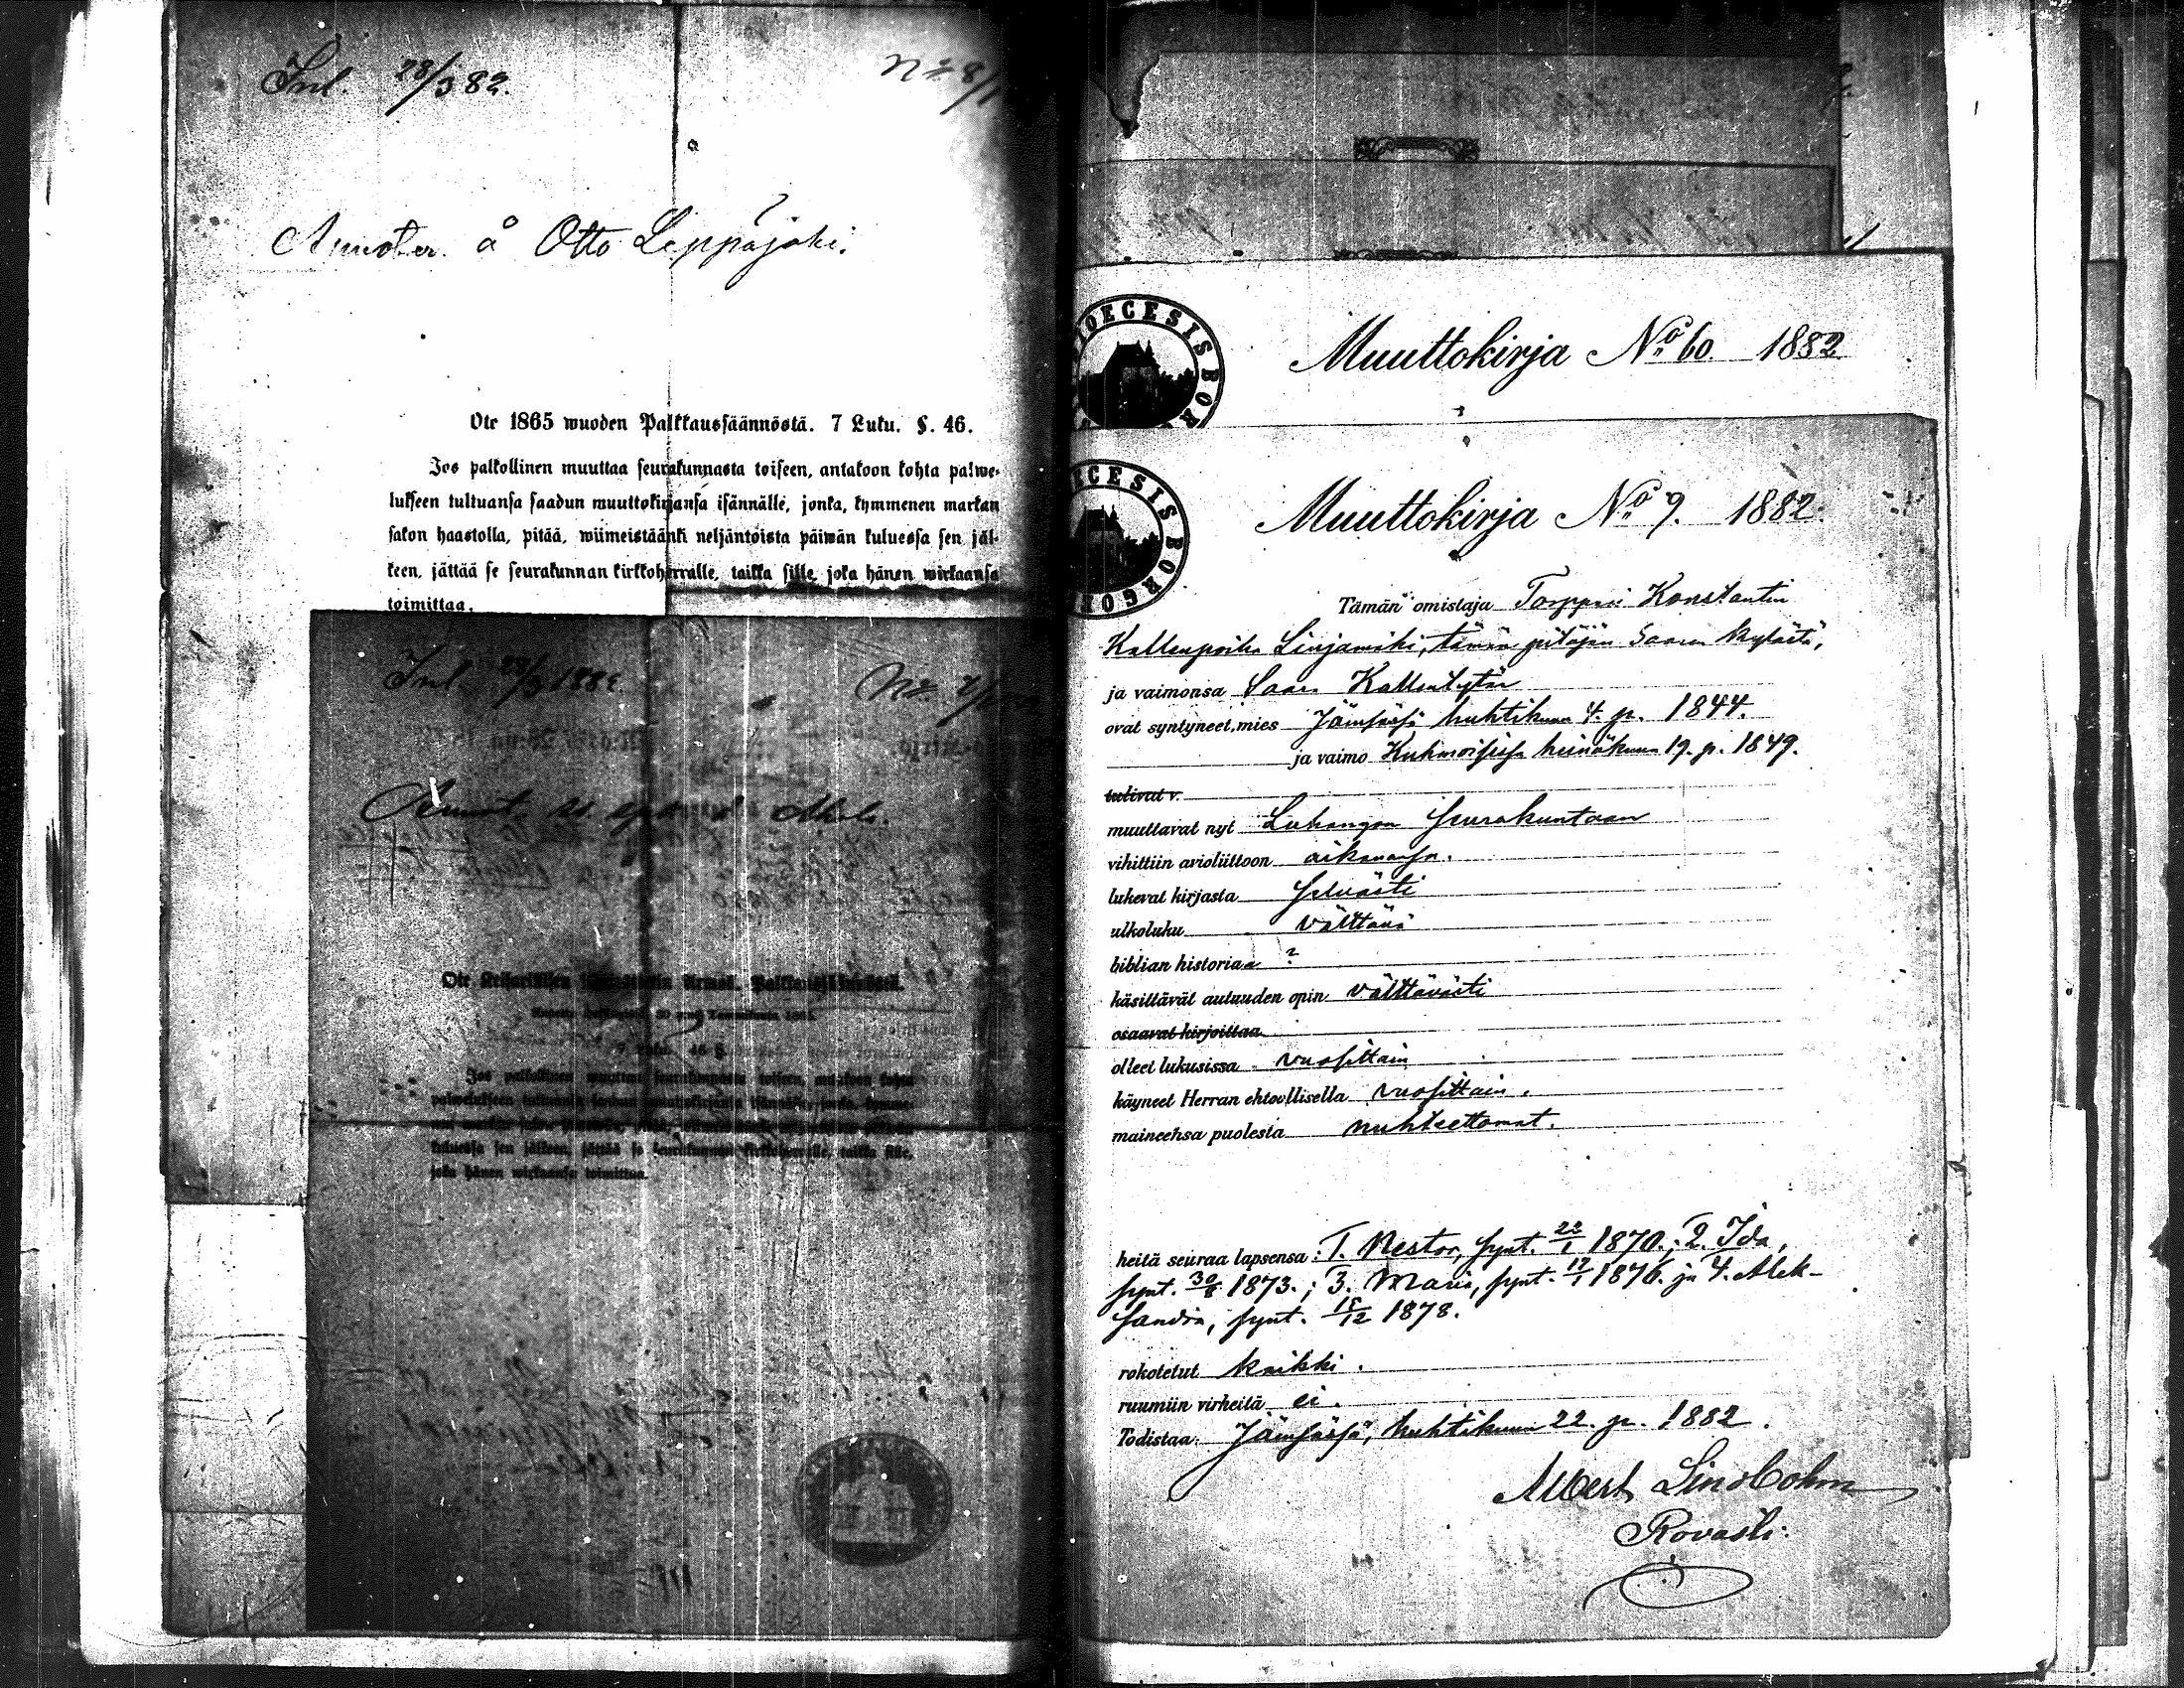 Inl. 28/3 82.
Annoter. å Otto Leppäjoki.
Ote 1865 wuoden Palkkaussäännöstä. 7 Luku. §. 46.
Jos palkollinen muuttaa seurakunnasta toiseen, antakoon kohta palwe-
lukseen tultuansa saadun muuttokirjansa isännälle, jonka, kymmenen markan
sakon haastolla, pitää, wiimeistäänki neljäntoista päiwän kuluessa sen jäl-
keen, jättää se seurakunnan kirkkoherralle, taikka sille, joka hänen wirkaansa
toimittaa.
Inl.
Annot.
Ote
7 Luku. 46 §.
Jos palkollinen muuttaa seurakunnasta toiseen, antakoon kohta
palwelukseen tultuansa saadun muuttokirjansa isännälle, jonka, kymme-
kuluessa sen jälkeen, jättää se seurakunnan kirkkoherralle, taikka sille,
joka hänen wirkaansa toimittaa.
DIOECESIS BOR
Muuttokirja No 60. 1882
CESIS BORGO
Muuttokirja No 9. 1882.
Tämän omistaja Torppari Konstantin
Kallenpoika Linjamäki, tämän pitäjän Saaren kylästä,
ja vaimonsa Saara Kallentytär
ovat syntyneet, mies Jämsässä huhtikuun 4. p. 1844.
ja vaimo Kuhmoisissa heinäkuun 19. p. 1849.
tulivat v.
muuttavat nyt Luhangan seurakuntaan
vihittiin avioliittoon aikanansa.
lukevat kirjasta selvästi
ulkoluku välttävä
biblian historiaa ?
käsittävät autuuden opin välttävästi
osaavat kirjoittaa
olleet lukusissa vuosittain
käyneet Herran ehtoollisella vuosittain.
maineensa puolesta nuhteettomat.
heitä seuraa lapsensa: 1. Nestor, synt. 22/1 1870.; 2. Ida,
synt. 30/8 1873.; 3. Maria, synt. 17/1 1876. ja 4. Alek-
sandra, synt. 15/12 1878.
rokotetut kaikki.
ruumiin virheitä ei.
Todistaa: Jämsässä, huhtikuun 22. p. 1882.
Albert Lindbohm
Rovasti.